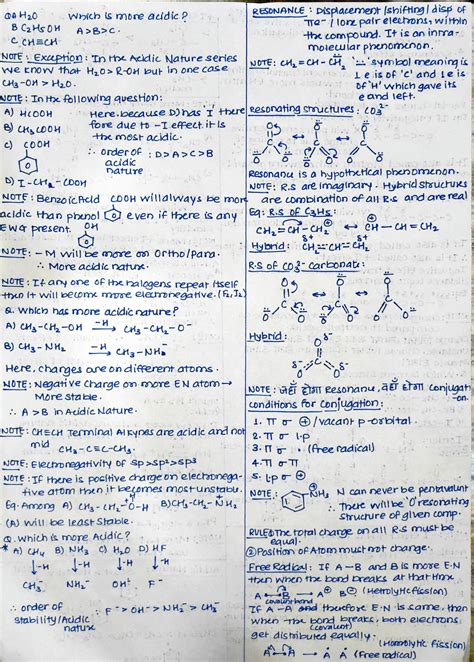 Q.A) H2O Which is more acidic?
B C2H5OH A>B>C.
C. CH≡CH
NOTE: Exception: In the Acidic Nature series
we know that H2O > R-OH but in one case
CH3-OH > H2O.
NOTE: In the following question:
A) HCOOH Here, because D) has I there
B) CH3COOH fore due to -I effect it is
C) COOH the most acidic.
∴ order of : D>A>C>B
acidic
nature
D) I-CH2-COOH
NOTE: Benzoic Acid COOH will always be more
acidic than phenol OH even if there is any
EWG present.
NOTE: -M will be more on Ortho/Para.
∴ More acidic nature.
NOTE: If any one of the halogens repeat itself
then it will become more electronegative. (F2, I2)
Q. Which has more acidic nature?
A) CH3-CH2-OH -H→ CH3-CH2-O⁻
B) CH3-NH2 -H→ CH3-NH⁻
Here, charges are on different atoms.
NOTE: Negative Charge on more EN atom →
More stable.
∴ A>B in Acidic Nature.
NOTE: CH≡CH Terminal Alkynes are acidic and not
mid CH3-C≡C-CH3.
NOTE: Electronegativity of sp>sp²>sp³
NOTE: If there is positive charge on electronega-
tive atom then it becomes most unstable.
Eg. Among A) CH3-CH2-O-H B) CH3-CH2-NH2
(A) will be least stable.
Q. Which is more Acidic?
A) CH4 B) NH3 C) H2O D) HF
↓-H ↓-H ↓-H ↓-H
CH3⁻ NH2⁻ OH⁻ F⁻
∴ order of F⁻ > OH⁻ > NH2⁻ > CH3⁻
stability/Acidic
nature
RESONANCE: Displacement/shifting/disp of
πe⁻ / lone pair electrons, within
the compound. It is an intra-
molecular phenomenon.
NOTE: CH2=CH-CH2 symbol meaning is
1 e is of 'C' and 1 e is
of 'H' which gave its
e and left.
Resonating structures: CO3²⁻
Resonance is a hypothetical phenomenon.
NOTE: R.S are imaginary. Hybrid structures
are combination of all R.S and are real
Eg: R.S of C3H5:
CH2=CH-CH2⊕ ↔ ⊕CH-CH=CH2
Hybrid: CH2=CH=CH2
R.S of CO3²⁻ carbonate:
Hybrid:
NOTE: जहाँ होगा Resonance, वहीं होगा Conjugati
-on.
Conditions for Conjugation:
1. π σ ⊕ / vacant p-orbital.
2. π σ l.p
3. π σ . (free radical)
4. π σ π
5. l.p σ ⊕
NOTE: NH3 N can never be pentavalent
∴ There will be '0' resonating
structure of given comp.
RULE ① The total charge on all R.S must be
equal.
② Position of Atom must not change.
Free Radical: If A-B and B is more E.N
then when the bond breaks at that time
A-B → A⊕ B⊖ (Heterolytic fission)
covalent bond
If A-A and therefore E.N is same, then
when the bond breaks, both electrons
(covalent)
get distributed equally:
(Homolytic fission)
A-A → A A (Free Radical)